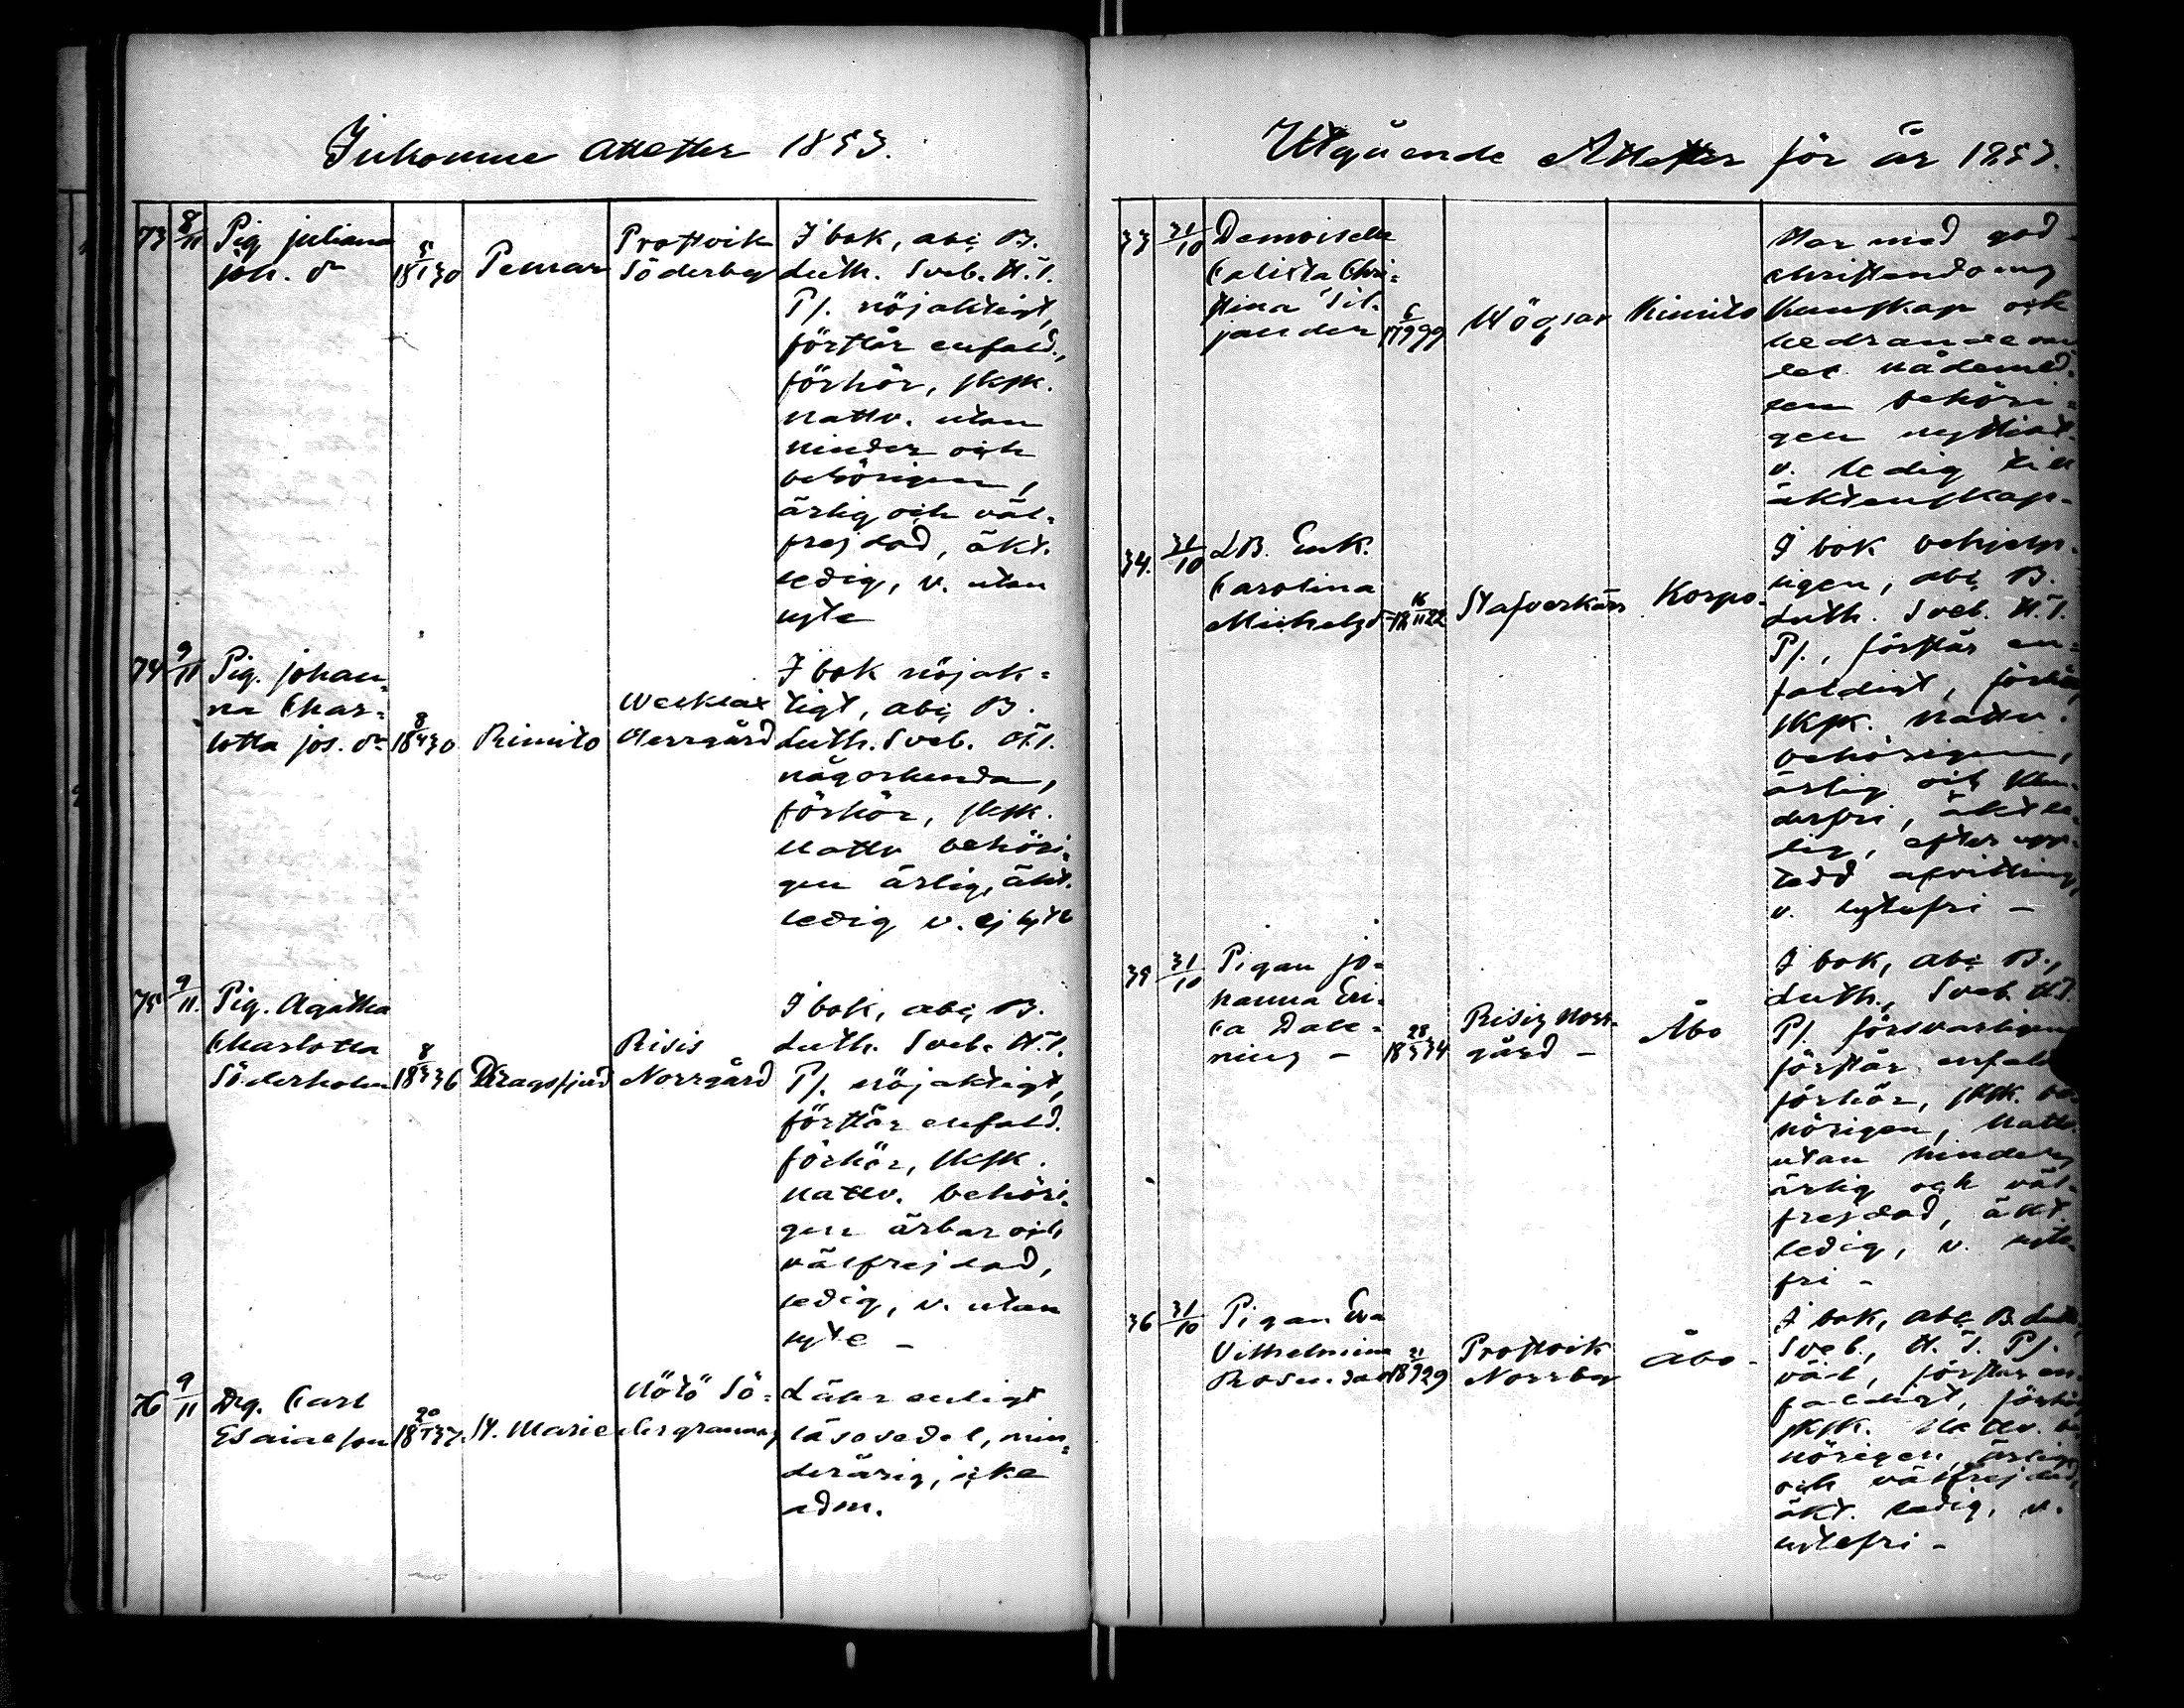 Inkomne attester 1853.
73 8/11 Pig. juliana joh. dr 18 5/1 30 Pemar Prostvik Söderby
I bok, abc, B.
Luth. Sveb. H.T.
Ps. nöjaktigt,
förstår enfald.,
förhör, skpk.
nattv. utan
hinder och
behörigen,
ärlig och väl-
frejdad, äkt.
ledig, v. utan
lyte
74 9/11 Pig. johan-
na Char-
lotta jos. dr 18 8/4 30 Rimito Werklax Herrgård
I bok nöjak-
tigt, abc, B.
Luth. Sveb. H.T.
någorlunda,
förhör, skpk.
nattv behöri-
gen ärlig, äkt.
ledig v. ej lyte
75 9/11. Pig. Agatha
Charlotta
Söderholm 18 8/3 36 Dragsfjerd Risis Norrgård
I bok, abc, B.
Luth. Sveb. H.T.
Ps. nöjaktigt,
förstår enfald.
förhör, skpk.
nattv. behöri-
gen ärbar och
välfrejdad,
ledig, v. utan
lyte -
76 9/11 Drg. Carl
Esaiaeson 18 20/1 37. St. Marie Nötö Sö-
dergrannas
Läser enligt
läsesedel, min-
derårig, icke
adm.
Utgående Attester för år 1853.
33 31/10 Demoiselle
Calixta Chri-
stina Sil-
jander 17 6/9 99 Mögsar Kimito
Har med god
christendoms
kunskap och
hedrande van
del nådemed-
len behöri-
gen nyttjat
v. ledig till
äktenskap-
34. 31/10 LB. Enk.
Carolina
Michelsd 18 16/11 22 Stafverkärr Korpo-
I bok behjelp-
ligen, abc, B.
Luth. Sveb. H.T.
Ps., förstår en-
faldigt, förhör,
skpk. nattv.
behörigen,
ärlig och klan-
derfri, äkt le-
dig, efter upp-
tedd afvittring,
v. lytefri -
35 31/10 Pigan jo-
hanna Eri-
ca Dale-
ning - 18 28/5 34 Risis Norr-
gård - Åbo
I bok, abc B.,
Luth., Sveb. H.T.
Ps. försvarligen
förstår enfald
förhör, skpk. be-
hörigen, nattv.
utan hinder,
ärlig och väl-
frejdad, äkt.
ledig, v. lyte-
fri -
36 31/10 Pigan Eva
Vilhelmina
Rosendal 18 21/9 29 Prostvik
Norrby Åbo-
I bok, abc B. Luth,
Sveb., H.T. Ps.
väl, förstår en-
faldigt, förhör
skpk. nattv. be-
hörigen, ärlig
och välfrejdad,
äkt. ledig, v.
lytefri -